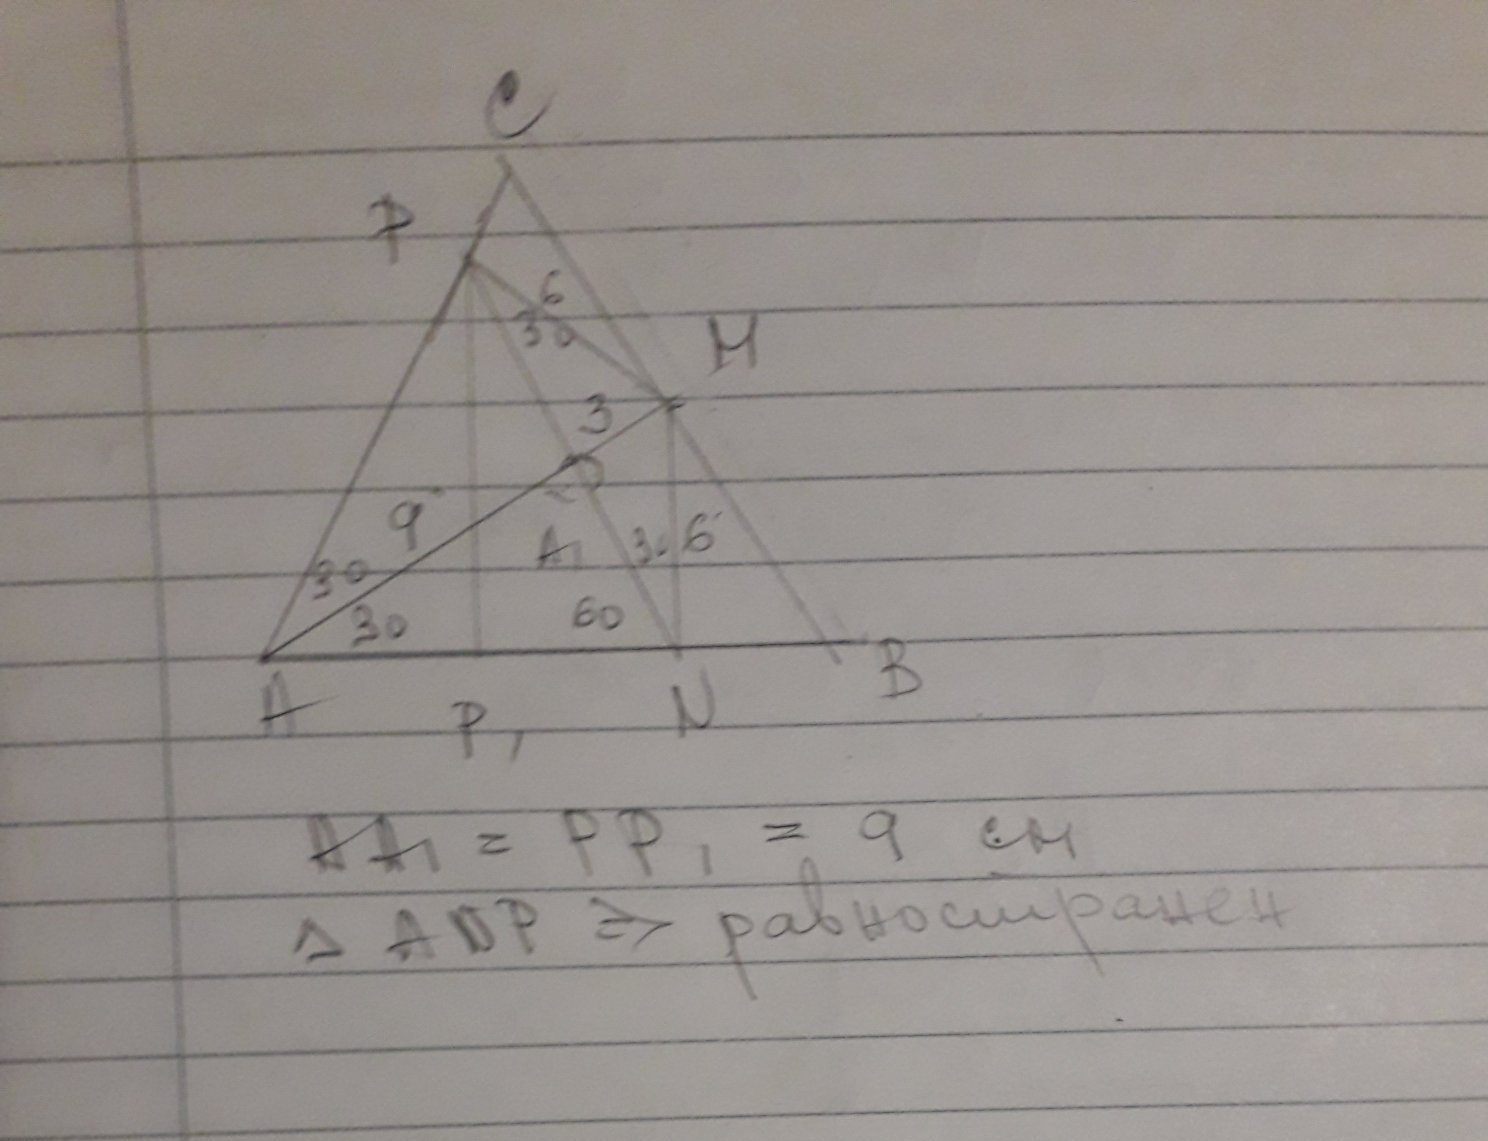 C
P
6
30
M
3
9
A₁
30
6
30
30
60
A
P₁
N
B
AA₁ = PP₁ = 9 см
△ ANP ⇒ равностранен